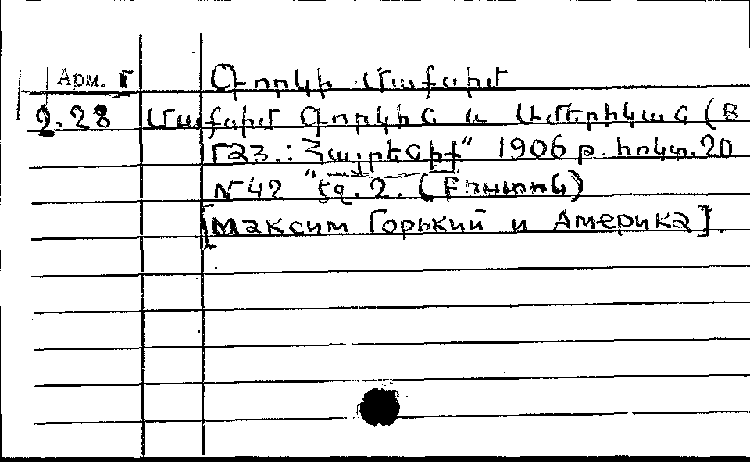 Арм. Г Գորկի Մաքսիմ
2.28 Մաքսիմ Գորկին և Ամերիկան (В
газ.: "Հայրենիք" 1906 թ. հոկտ. 20
N 42 էջ. 2. (Բոստոն)
[Максим Горький и Америка].